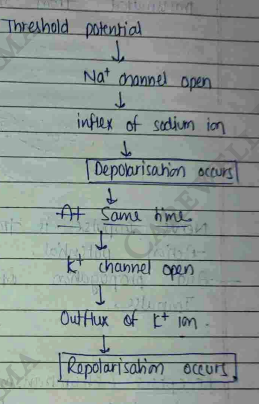 Threshold potential
↓
Na⁺ channel open
↓
inflex of sodium ion
↓
Depolarisation occurs
↓
At Same time
↓
K⁺ channel open
↓
Outflux of K⁺ ion.
↓
Repolarisation occurs